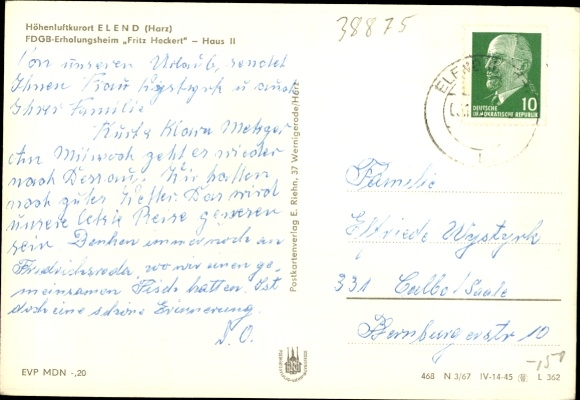 Höhenluftkurort ELEND (Harz)
FDGB-Erholungsheim „Fritz Heckert" – Haus II
38875
Von unseren Urlaub, sendet
Ihnen Frau Wystyrk u auch
Ihrer Familie
Kurte Klara Metzger
Am Mittwoch geht es wieder
nach Dessau. Wir hatten
noch gutes Wetter. Das wird
unsere letzte Reise gewesen
sein. Denken immer noch an
Friedrichsroda, wo wir einen ge-
meinsamen Tisch hatten. Ist
doch eine schöne Erinnerung.
D. O.
EVP MDN -,20
Postkartenverlag E. Riehn, 37 Wernigerode/Harz
DEUTSCHE
DEMOKRATISCHE REPUBLIK
10
Familie
Elfriede Wystyrk
331 Calbe/Saale
Bernburgerstr 10
-,15
468 N 3/67 IV-14-45 L 362